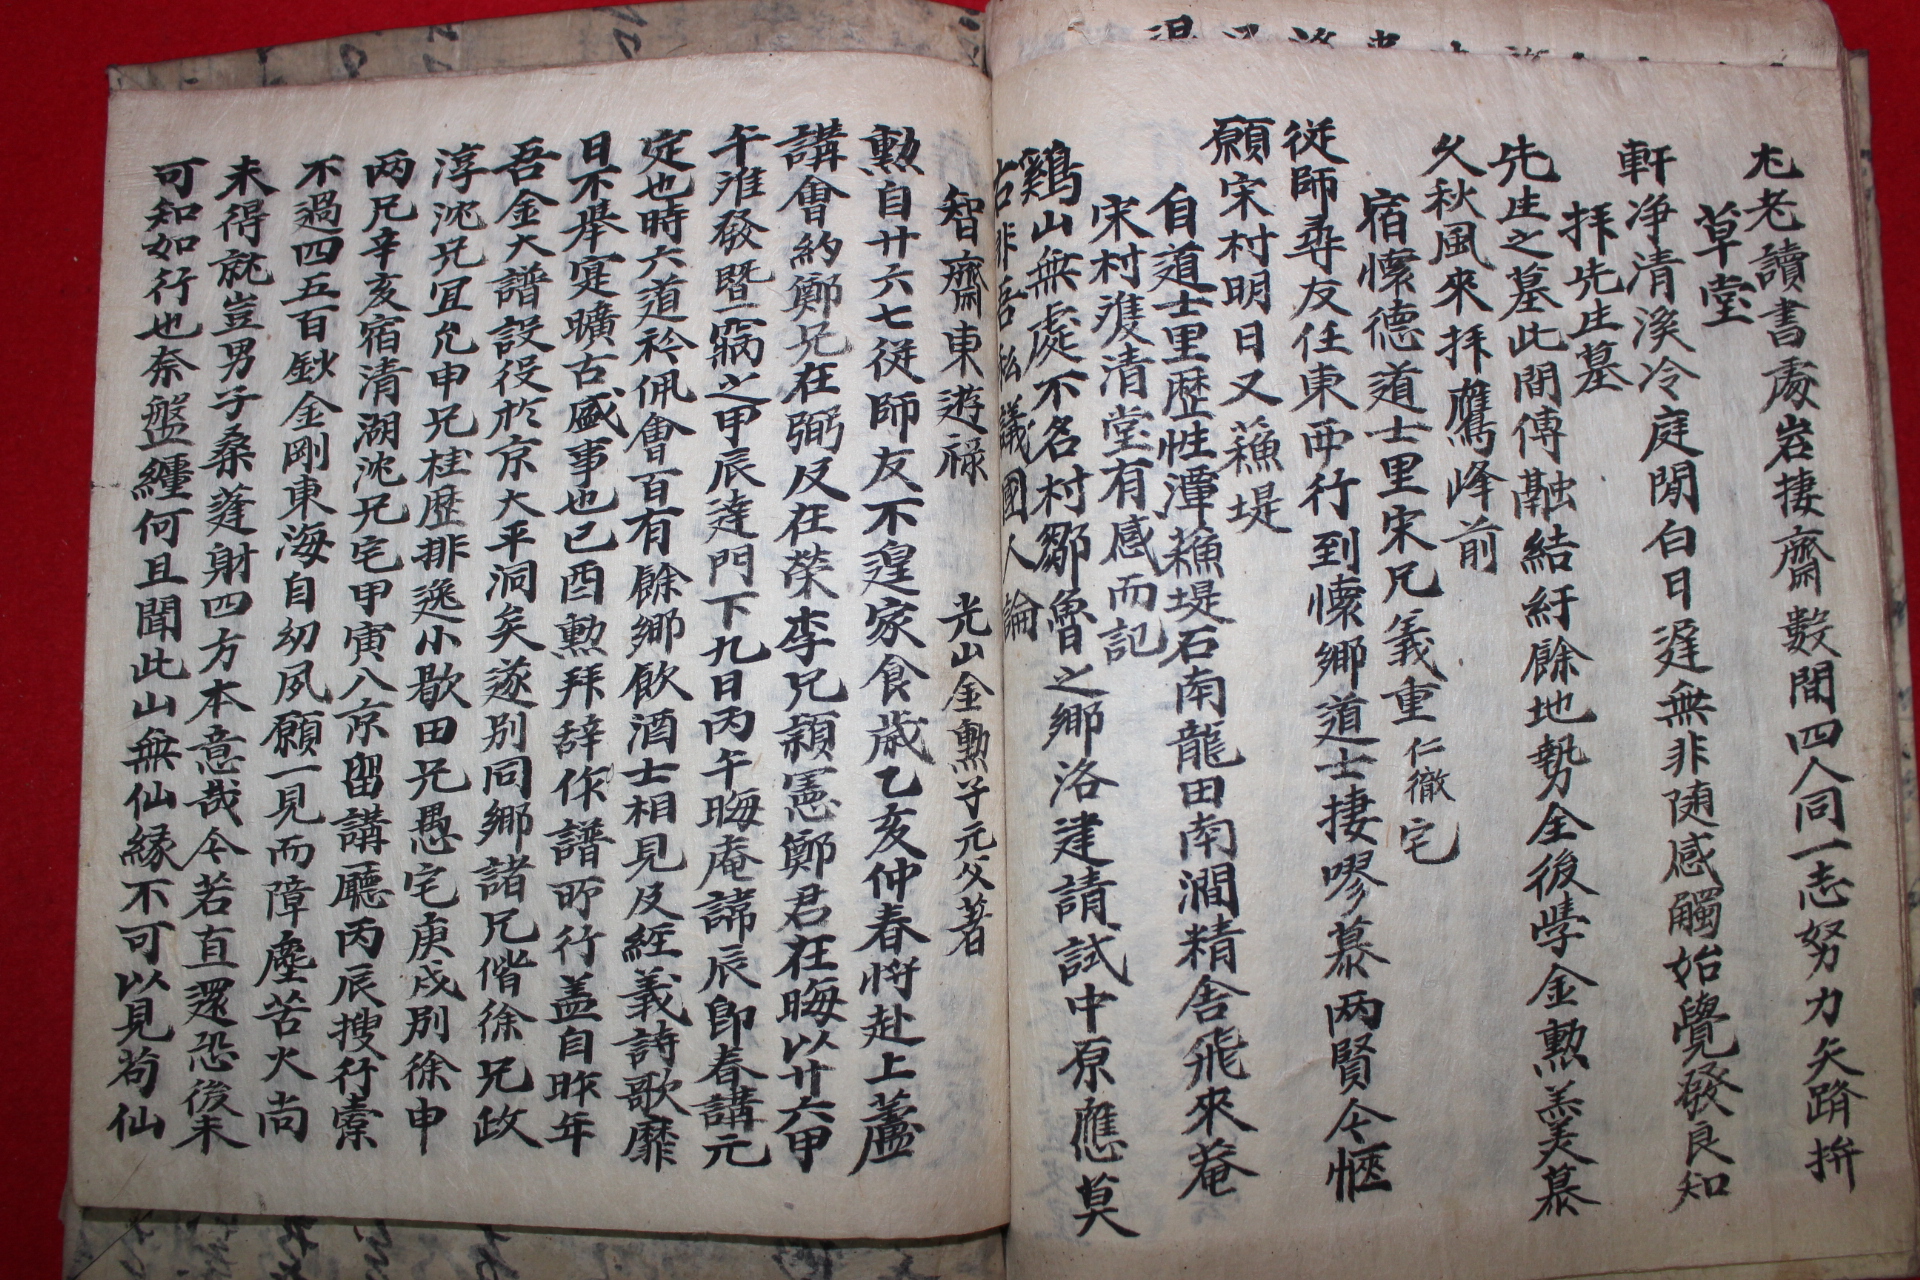 尤老讀書處岩捿齋數間四人同一志努力矢躋拚
草堂
軒净清溪冷庭閒白日遲無非随感觸始覺發良知
拝先生墓
先生之墓此間傳融結紆餘地勢全後學金勲羔美慕
久秋風來拝鷹峰前
宿懷德道士里宋兄義重仁徹宅
從師尋友任東西行到懷鄉道士捿嘐慕两賢今愜
願宋村明日又蘓堤
自道士里歷性潭蘓堤石南龍田南澗精舍飛來菴
宋村濩清堂有感而記
鷄山無處不名村鄒魯之鄉洛建請試中原應莫
古非吾私議國人論
智齋東遊祿 光山金勲子元父著
勲自廿六七從師友不遑家食歲乙亥仲春將赴上蘆
講會約鄭兄在弼及在榮李兄穎憲鄭君在晦以廿六甲
午淮發暨二窩之甲辰達門下九日丙午晦庵諱辰卽春講元
定也時六道衿佩會百有餘鄉飲酒士相見及經義詩歌靡
日不舉寔曠古盛事也已酉勲拜辞作譜所行盖自昨年
吾金大譜設役於京大平洞矣遂別同鄉諸兄偕徐兄政
淳沈兄冝允申兄桂歷排逸小歇田兄愚宅庚戌別徐申
两兄辛亥宿清湖沈兄宅甲寅八京留講廳丙辰搜行槖
不過四五百鈔金剛東海自幼夙願一見而障塵苦火尚
未得就豈男子桑蓬射四方本意哉今若直還恐後未
可知如行也奈盤纏何且聞此山無仙緣不可以見苟仙